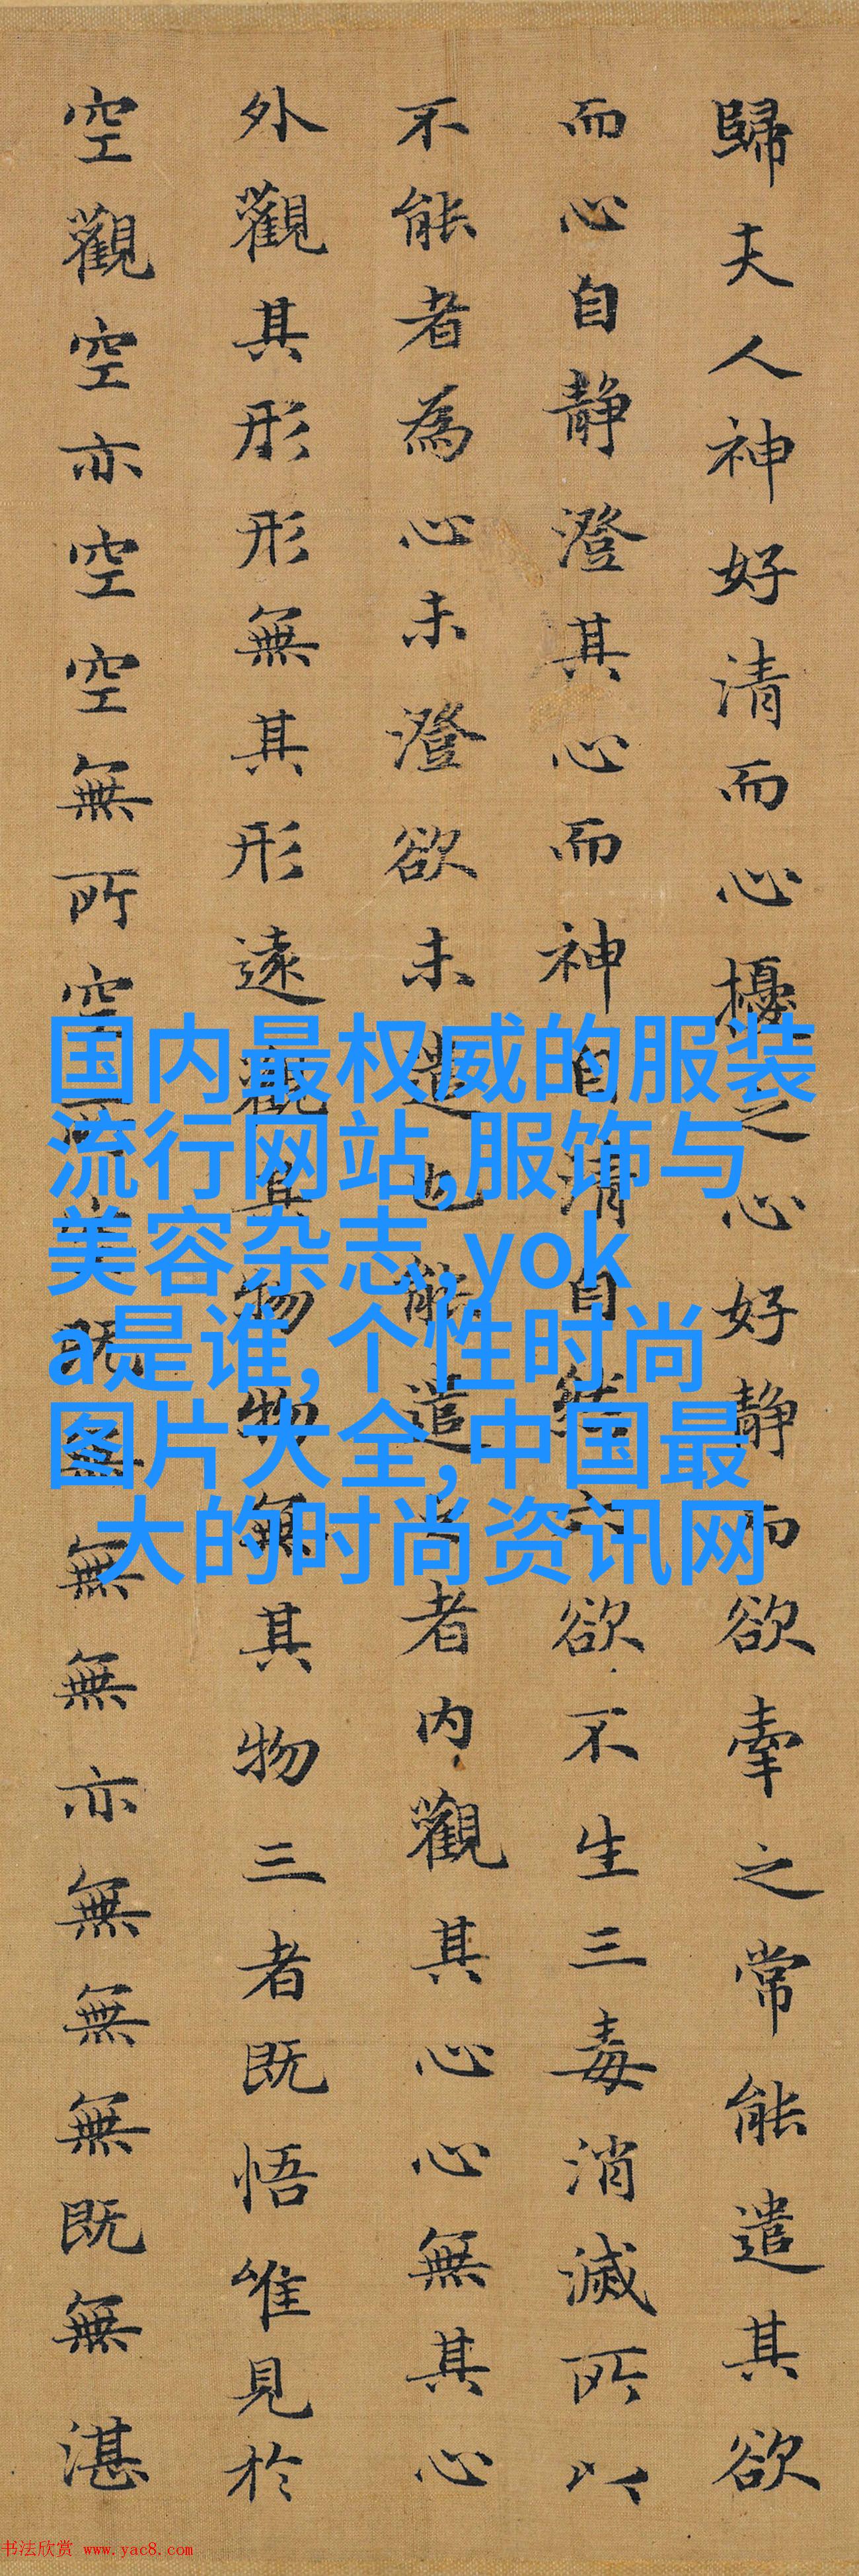 歸夫人神好清而心擾之心好静而欲牽之常能遣其欲
而心自静澄其心而神自清自然六欲不生三毒消滅所以
不能者為心未澄欲未遣也能遣之者内觀其心心無其心
外觀其形形無其形遠觀其物物無其物三者既悟唯見於
空觀空亦空空無所空所空既無無無亦無無無既無湛
国内最权威的服装
流行网站,服饰与
美容杂志,yok
a是谁,个性时尚
图片大全,中国最
大的时尚资讯网
书法欣赏 www.yac8.com